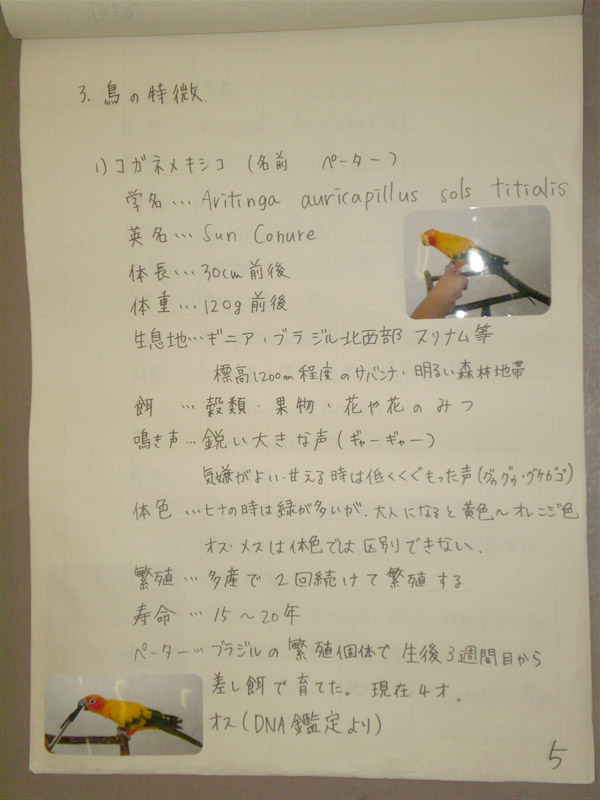 3. 鳥の特徴.
1) コガネメキシコ (名前 ペーター)
学名… Aritinga auricapillus sols titialis
英名… Sun Conure
体長… 30cm前後
体重… 120g前後
生息地…ギニア・ブラジル北西部 スリナム等
標高1200m程度のサバンナ・明るい森林地帯
餌 … 穀類・果物・花や花のみつ
鳴き声…鋭い大きな声(ギャーギャー)
気嫌がよい・甘える時は低くくぐもった声(グゥグゥ・グケガゴ)
体色 …ヒナの時は緑が多いが、大人になると黄色〜オレンジ色
オス・メスは体色では区別できない.
繁殖 … 多産で2回続けて繁殖する
寿命 … 15〜20年
ペーター…ブラジルの繁殖個体で生後3週間目から
差し餌で育てた。現在4才.
オス(DNA鑑定より)
5